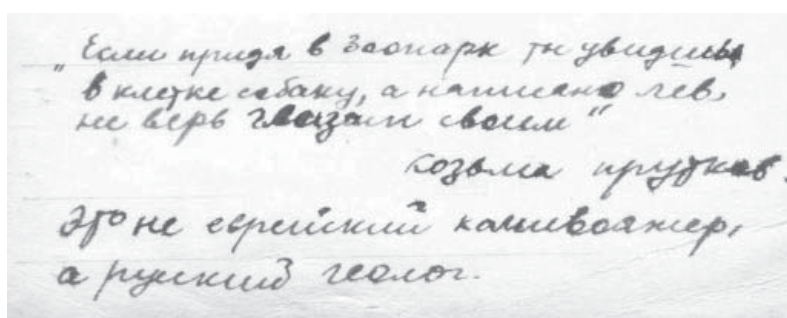 „Если придя в зоопарк ты увидишь
в клетке собаку, а написано лев,
не верь глазам своим“
козьма прутков.
Это не еврейский коммивояжер,
а русский геолог.